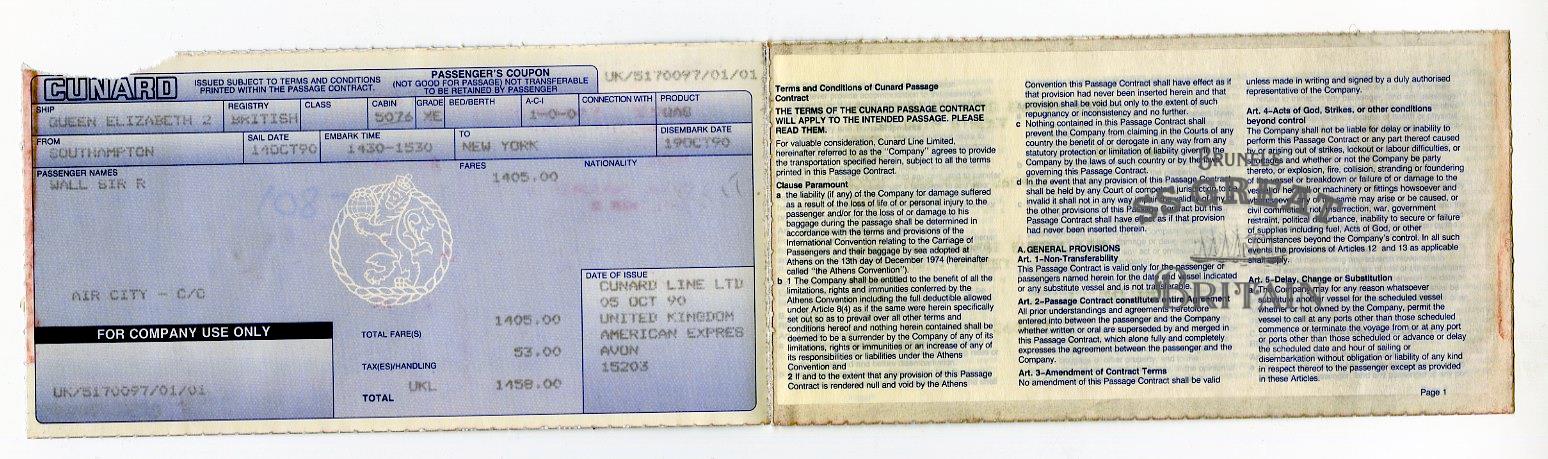 CUNARD
ISSUED SUBJECT TO TERMS AND CONDITIONS
PRINTED WITHIN THE PASSAGE CONTRACT.
PASSENGER'S COUPON
(NOT GOOD FOR PASSAGE) NOT TRANSFERABLE
TO BE RETAINED BY PASSENGER
UK/5170097/01/01
SHIP REGISTRY CLASS CABIN GRADE BED/BERTH A-C-I CONNECTION WITH PRODUCT
QUEEN ELIZABETH 2 BRITISH 5076 1-0-0
FROM SAIL DATE EMBARK TIME TO DISEMBARK DATE
SOUTHAMPTON 14OCT90 1430-1530 NEW YORK 19OCT90
PASSENGER NAMES FARES NATIONALITY
WALL SIR R 1405.00
AIR CITY - C/C
FOR COMPANY USE ONLY
UK/5170097/01/01
1405.00
TOTAL FARE(S)
53.00
TAX(ES)/HANDLING
UKL 1458.00
TOTAL
DATE OF ISSUE
CUNARD LINE LTD
05 OCT 90
UNITED KINGDOM
AMERICAN EXPRES
AVON
15203
Terms and Conditions of Cunard Passage
Contract
THE TERMS OF THE CUNARD PASSAGE CONTRACT
WILL APPLY TO THE INTENDED PASSAGE. PLEASE
READ THEM.
For valuable consideration, Cunard Line Limited,
hereinafter referred to as the "Company" agrees to provide
the transportation specified herein, subject to all the terms
printed in this Passage Contract.
Clause Paramount
a the liability (if any) of the Company for damage suffered
as a result of the loss of life of or personal injury to the
passenger and/or for the loss of or damage to his
baggage during the passage shall be determined in
accordance with the terms and provisions of the
International Convention relating to the Carriage of
Passengers and their baggage by sea adopted at
Athens on the 13th day of December 1974 (hereinafter
called "the Athens Convention").
b 1 The Company shall be entitled to the benefit of all the
limitations, rights and immunities conferred by the
Athens Convention including the full deductible allowed
under Article 8(4) as if the same were herein specifically
set out so as to prevail over all other terms and
conditions hereof and nothing herein contained shall be
deemed to be a surrender by the Company of any of its
limitations, rights or immunities or an increase of any of
its responsibilities or liabilities under the Athens
Convention and
2 if and to the extent that any provision of this Passage
Contract is rendered null and void by the Athens
Convention this Passage Contract shall have effect as if
that provision had never been inserted herein and that
provision shall be void but only to the extent of such
repugnancy or inconsistency and no further.
c Nothing contained in this Passage Contract shall
prevent the Company from claiming in the Courts of any
country the benefit of or derogate in any way from any
statutory protection or limitation of liability given to the
Company by the laws of such country or by the
governing this Passage Contract.
d In the event that any provision of this Passage
shall be held by any Court of competent jurisdiction to
invalid it shall not in any way
the other provisions of this Passage Contract but this
Passage Contract shall have effect as if that provision
had never been inserted herein.
A. GENERAL PROVISIONS
Art. 1–Non-Transferability
This Passage Contract is valid only for the passenger or
passengers named herein for the date and vessel indicated
or any substitute vessel and is not transferable.
Art. 2–Passage Contract constitutes Agreement
All prior understandings and agreements heretofore
entered into between the passenger and the Company
whether written or oral are superseded by and merged in
this Passage Contract, which alone fully and completely
expresses the agreement between the passenger and the
Company.
Art. 3–Amendment of Contract Terms
No amendment of this Passage Contract shall be valid
unless made in writing and signed by a duly authorised
representative of the Company.
Art. 4–Acts of God, Strikes, or other conditions
beyond control
The Company shall not be liable for delay or inability to
perform this Passage Contract or any part thereof caused
by or arising out of strikes, lockout or labour difficulties, or
and whether or not the Company be party
thereto, or explosion, fire, collision, stranding or foundering
of the vessel or breakdown or failure of or damage to the
vessel or its machinery or fittings howsoever and
same may arise or be caused, or
civil commotion, insurrection, war, government
restraint, political disturbance, inability to secure or failure
of supplies including fuel, Acts of God, or other
circumstances beyond the Company's control. In all such
events the provisions of Articles 12 and 13 as applicable
shall apply.
Art. 5–Delay, Change or Substitution
The Company may for any reason whatsoever
another vessel for the scheduled vessel
whether or not owned by the Company, permit the
vessel to call at any ports other than those scheduled
commence or terminate the voyage from or at any port
or ports other than those scheduled or advance or delay
the scheduled date and hour of sailing or
disembarkation without obligation or liability of any kind
in respect thereof to the passenger except as provided
in these Articles.
Page 1
BRUNEL'S
SS GREAT
BRITAIN